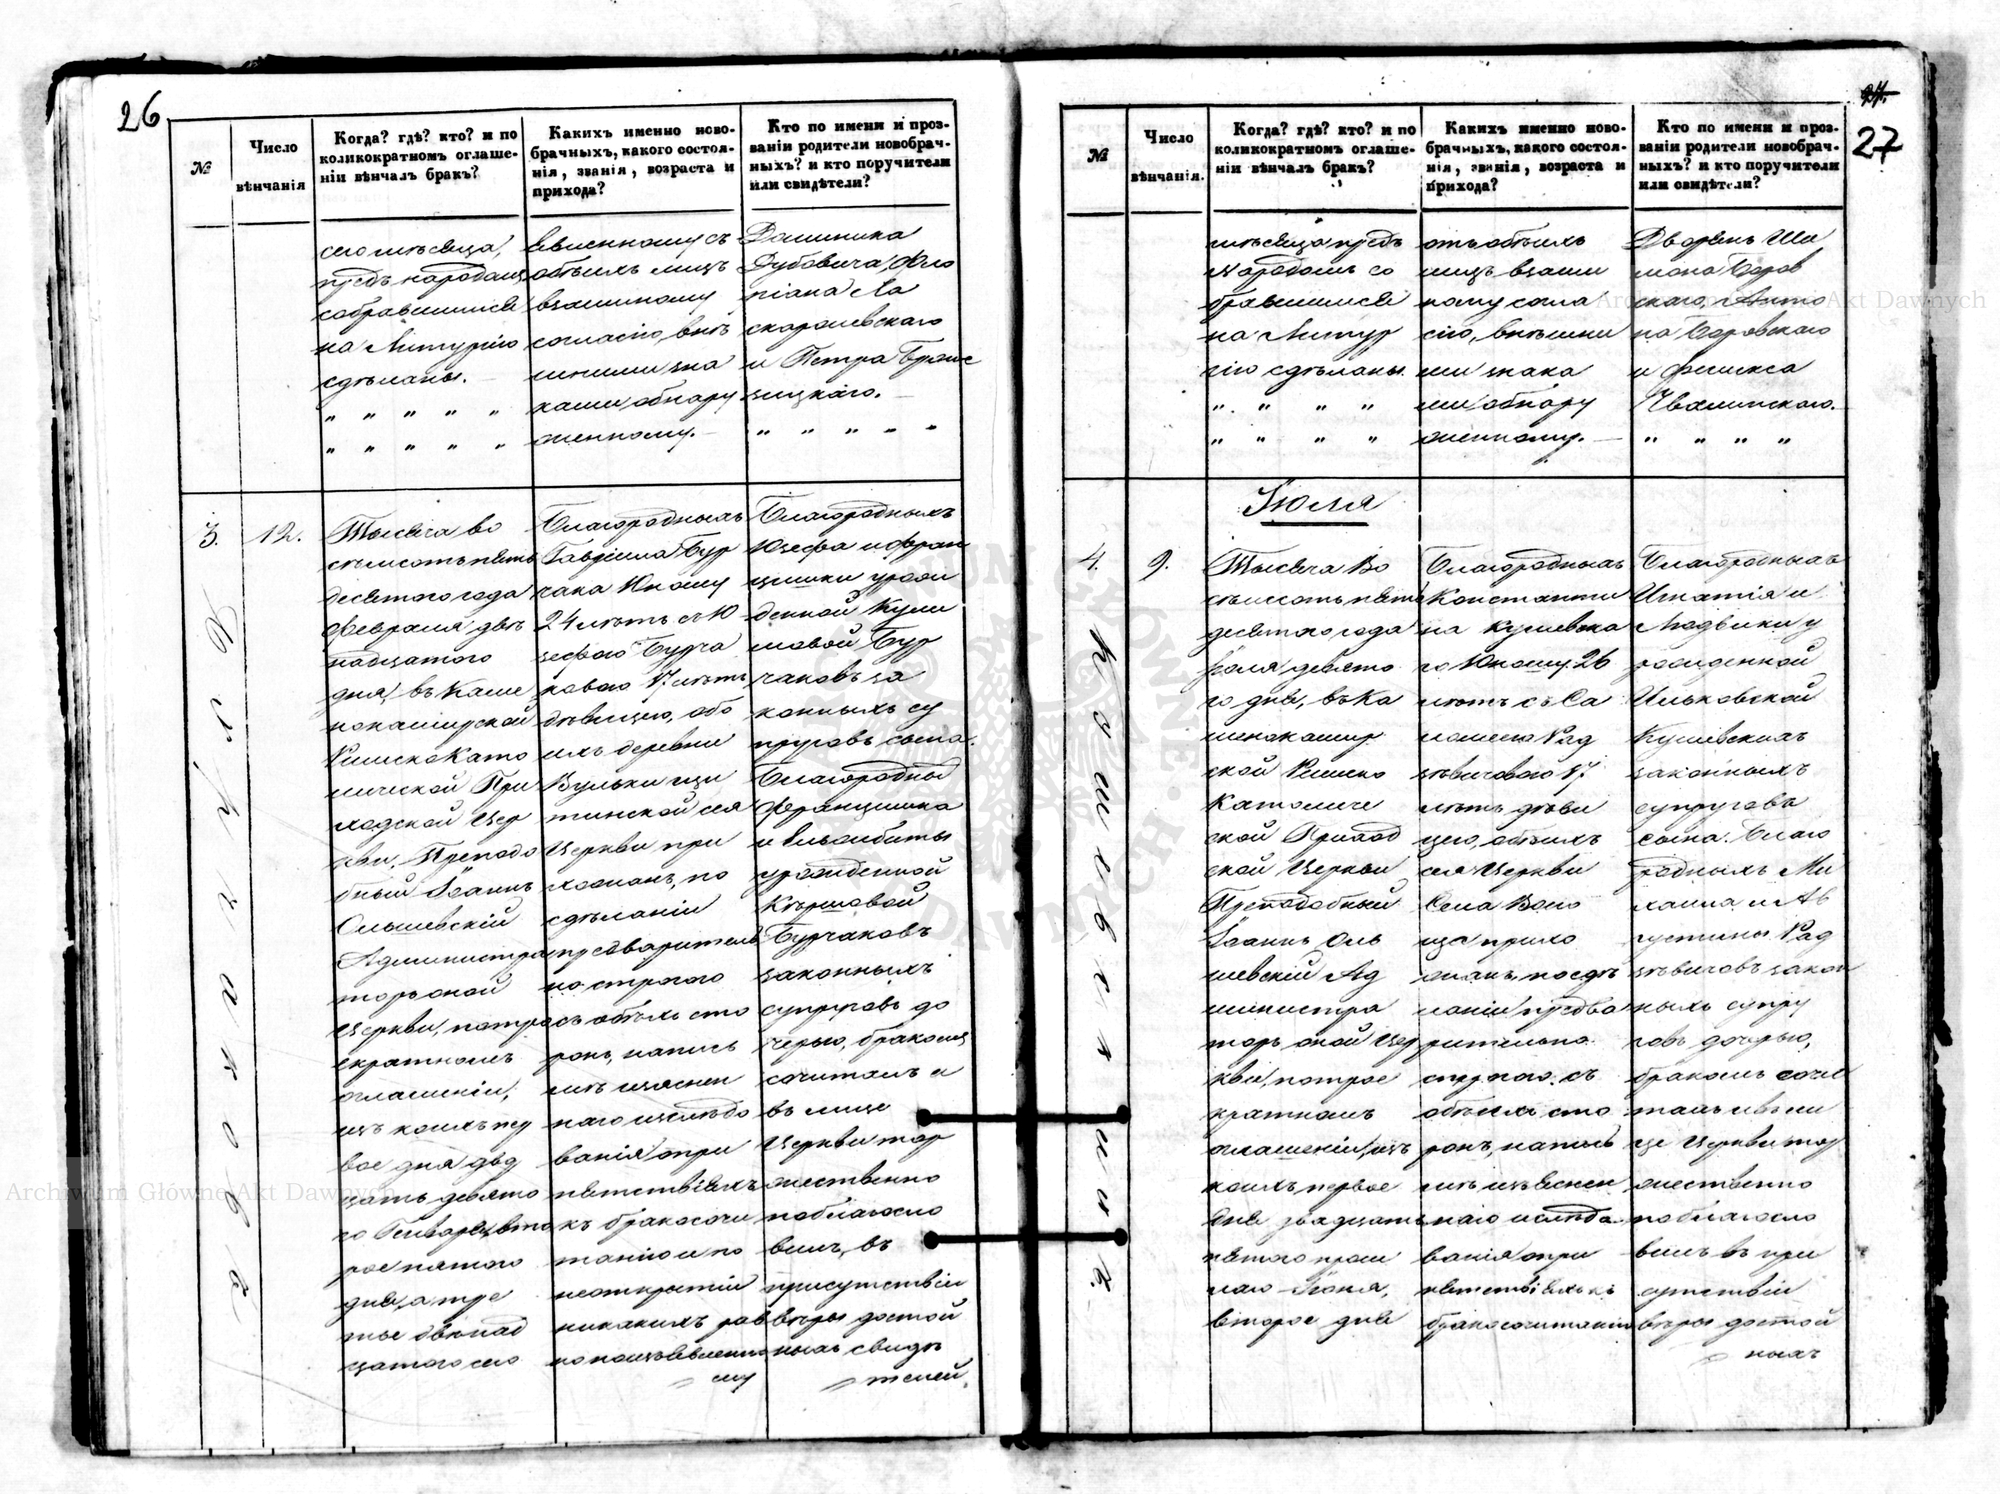 26
№
Число
вѣнчанія
Когда? гдѣ? кто? и по
коликократномъ оглаше-
ніи вѣнчалъ бракъ?
Какихъ именно ново-
брачныхъ, какого состоя-
нія, званія, возраста и
прихода?
Кто по имени и проз-
ваніи родители новобрач-
ныхъ? и кто поручители
или свидѣтели?
сего мѣсяца,
предъ народомъ
собравшимся
на Литургію
сдѣланы.
" " " " "
" " " " "
явленному съ
обѣихъ лицъ
взаимному
согласію, внѣ
шними зна
ками обнару
женному.
Доминика
Дубовича, Фло
ріана
и Петра
зицкаго.
" " " " "
3.
12.
Тысяча во
семьсотъ пять
десятого года
Февраля двѣ
надцатого
дня, въ Каме
нокаширской
Римско Като
лической При
ходской Цер
кви, Преподо
бный Іоаннъ
Ольшевскій
Администра
торъ оной
Церкви, по трое
кратномъ
оглашеніи,
изъ коихъ пер
вое дня двад
цать девято
го Генваря, вто
рое пятого
дня, а тре
тье двѣнад
цатого сего
Благородныхъ
Гавріила Бур
чака Юношу
24 лѣтъ съ Ю
зефою Бурча
ковою 17 лѣтъ
дѣвицею, обо
ихъ деревни
Вульки Щи
тинской сея
Церкви при
хожанъ, по
сдѣланіи
предваритель
но строгого
съ обѣихъ сто
ронъ, написъ
мѣ изяснен
наго изслѣдо
ванія о пре
пятствіяхъ
къ бракосочи
танію и по
неоткрытіи
никакихъ рав
но по изъявленно
му
Благородныхъ
Юзефа и Фран
цишки урожд
денной Кули
шовой Бур
чаковъ за
конныхъ су
пруговъ сына.
Благородных
Францишка
и Ельзбиты
урожденной
Бурчаковъ
законныхъ
супруговъ до
черью, бракомъ
сочиталъ и
въ лице
Церкви тор
жественно
поблагосло
вилъ, въ
присутствіи
вѣры достой
ныхъ свидѣ
телей,
27
№
Число
вѣнчанія.
Когда? гдѣ? кто? и по
коликократномъ оглаше-
ніи вѣнчалъ бракъ?
Какихъ именно ново-
брачныхъ, какого состоя-
нія, званія, возраста и
прихода?
Кто по имени и проз-
ваніи родители новобрач-
ныхъ? и кто поручители
или свидѣтели?
мѣсяца предъ
народомъ со
бравшимся
на Литур
гію сдѣланы.
" " " "
" " " "
отъ обѣихъ
лицъ взаим
ному согла
сію, внѣшни
ми знака
ми обнару
женному.
Дворянъ Ши
мона Боров
скаго, Анто
на Боровскаго
и Феликса
Хвалинскаго.
" " " "
Іюля
4.
9.
Тысяча Во
семьсотъ пять
десятого года
Іюля девято
го дня, въ Ка
менокашир
ской Римско
Католиче
ской Приход
ской Церкви
Преподобный
Іоаннъ Оль
шевскій Ад
министра
торъ оной Цер
кви, по трое
кратномъ
оглашеніи, изъ
коихъ первое
дня двадцать
пятого прош
лаго Іюня,
второе дня
Благородныхъ
Константи
на Кулевска
го Юношу 26
лѣтъ съ Са
ломеею Рад
зѣвичовою 17
лѣтъ дѣви
цею, обоихъ
сея Церкви
Села Воло
прихо
жанъ, по сдѣ
ланіи предва
рительно
строгого съ
обѣихъ сто
ронъ, написъ
мѣ изъяснен
наго изслѣдо
ванія о пре
пятствіяхъ къ
бракосочитанію
Благородныхъ
Игнатія и
Людвики у
рожденной
Ильковской
Кулевскихъ
законныхъ
супруговъ
сына. Благо
родныхъ Ми
хаила и Ав
густины Рад
зѣвичовъ закон
ныхъ супру
говъ дочерью,
бракомъ сочи
талъ и въ ли
це Церкви тор
жественно
поблагосло
вилъ въ при
сутствіи
вѣры достой
ныхъ
Archiwum Główne Akt Dawnych
Archiwum Główne Akt Dawnych